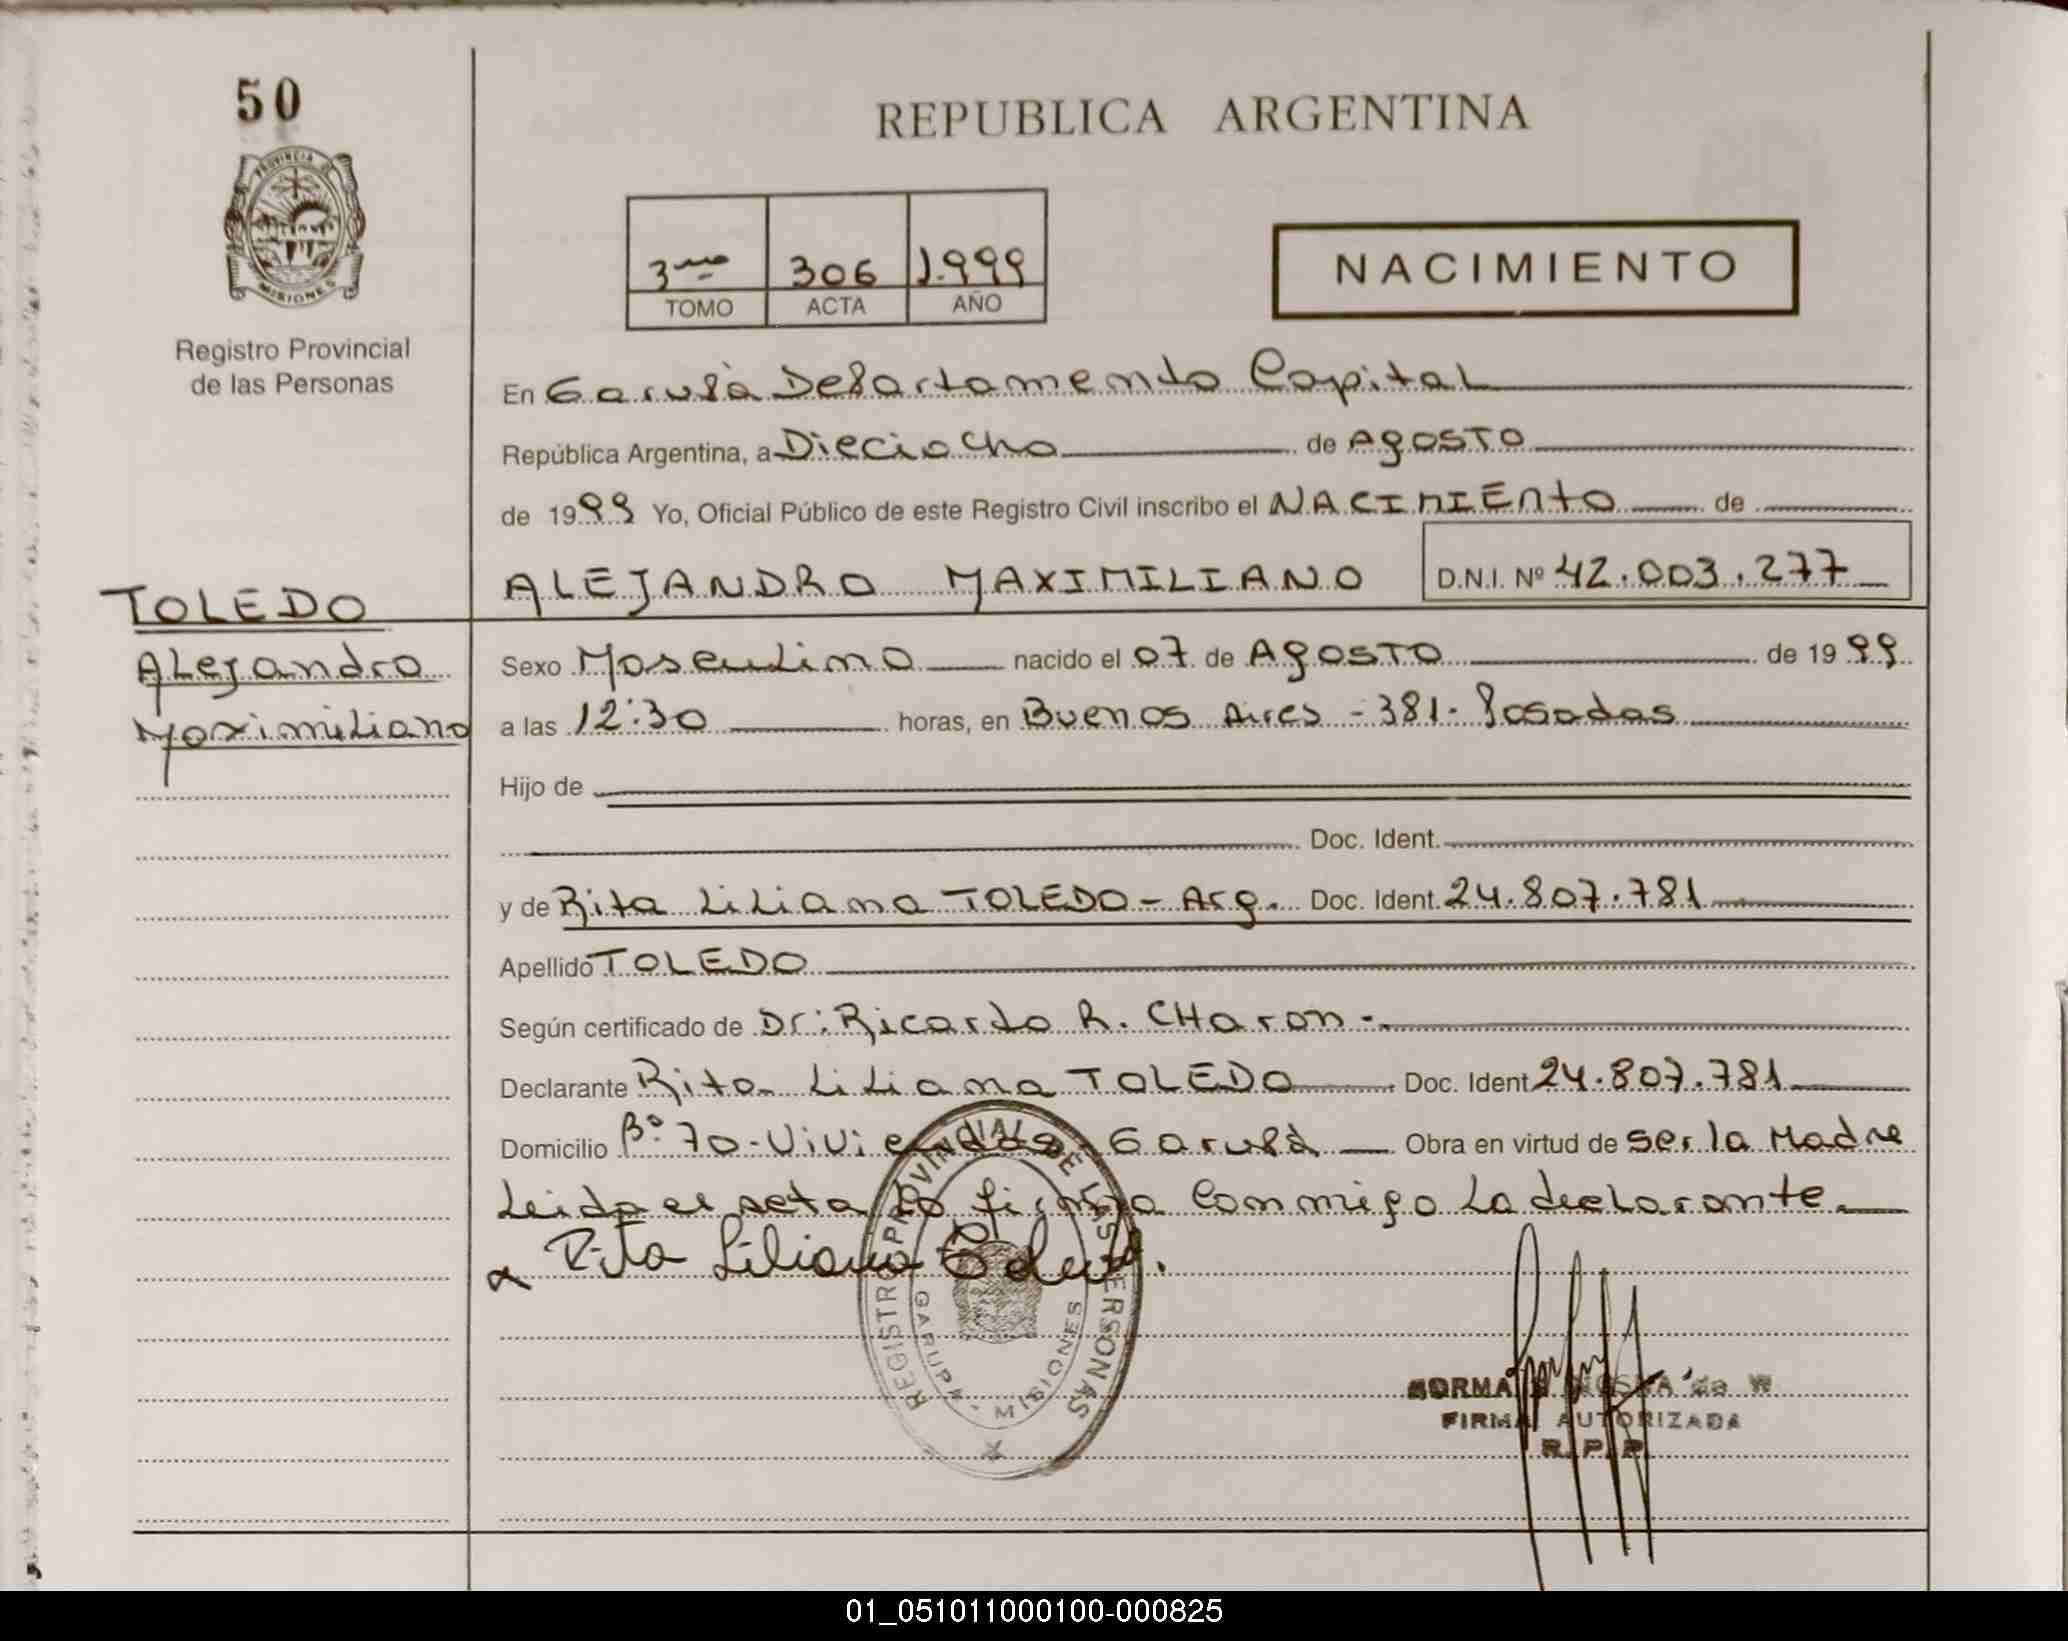 50
PROVINCIA DE
MISIONES
Registro Provincial
de las Personas
REPUBLICA ARGENTINA
3ero 306 1.999
TOMO ACTA AÑO
NACIMIENTO
En Garupà Departamento Capital
República Argentina, a Dieciocho de Agosto
de 1999 Yo, Oficial Público de este Registro Civil inscribo el NACIMIENto de
ALEJANDRO MAXIMILIANO D.N.I. Nº 42.003.277
TOLEDO
Alejandro
Maximiliano
Sexo Masculino nacido el 07 de Agosto de 1999
a las 12:30 horas, en Buenos Aires - 381 - Posadas
Hijo de
Doc. Ident.
y de Rita Liliana TOLEDO - Arg. Doc. Ident. 24.807.781
Apellido TOLEDO
Según certificado de Dr: Ricardo R. CHaron -.
Declarante Rita Liliana TOLEDO Doc. Ident 24.807.781
Domicilio Bº 70-Viviendas - Garupà Obra en virtud de ser la Madre
Leida el acta la firma conmigo la declarante.
Rita Liliana Toledo.
REGISTRO PROVINCIAL DE LAS PERSONAS
GARUPA - MISIONES
NORMA de W
FIRMA AUTORIZADA
R.P.P.
01_051011000100-000825